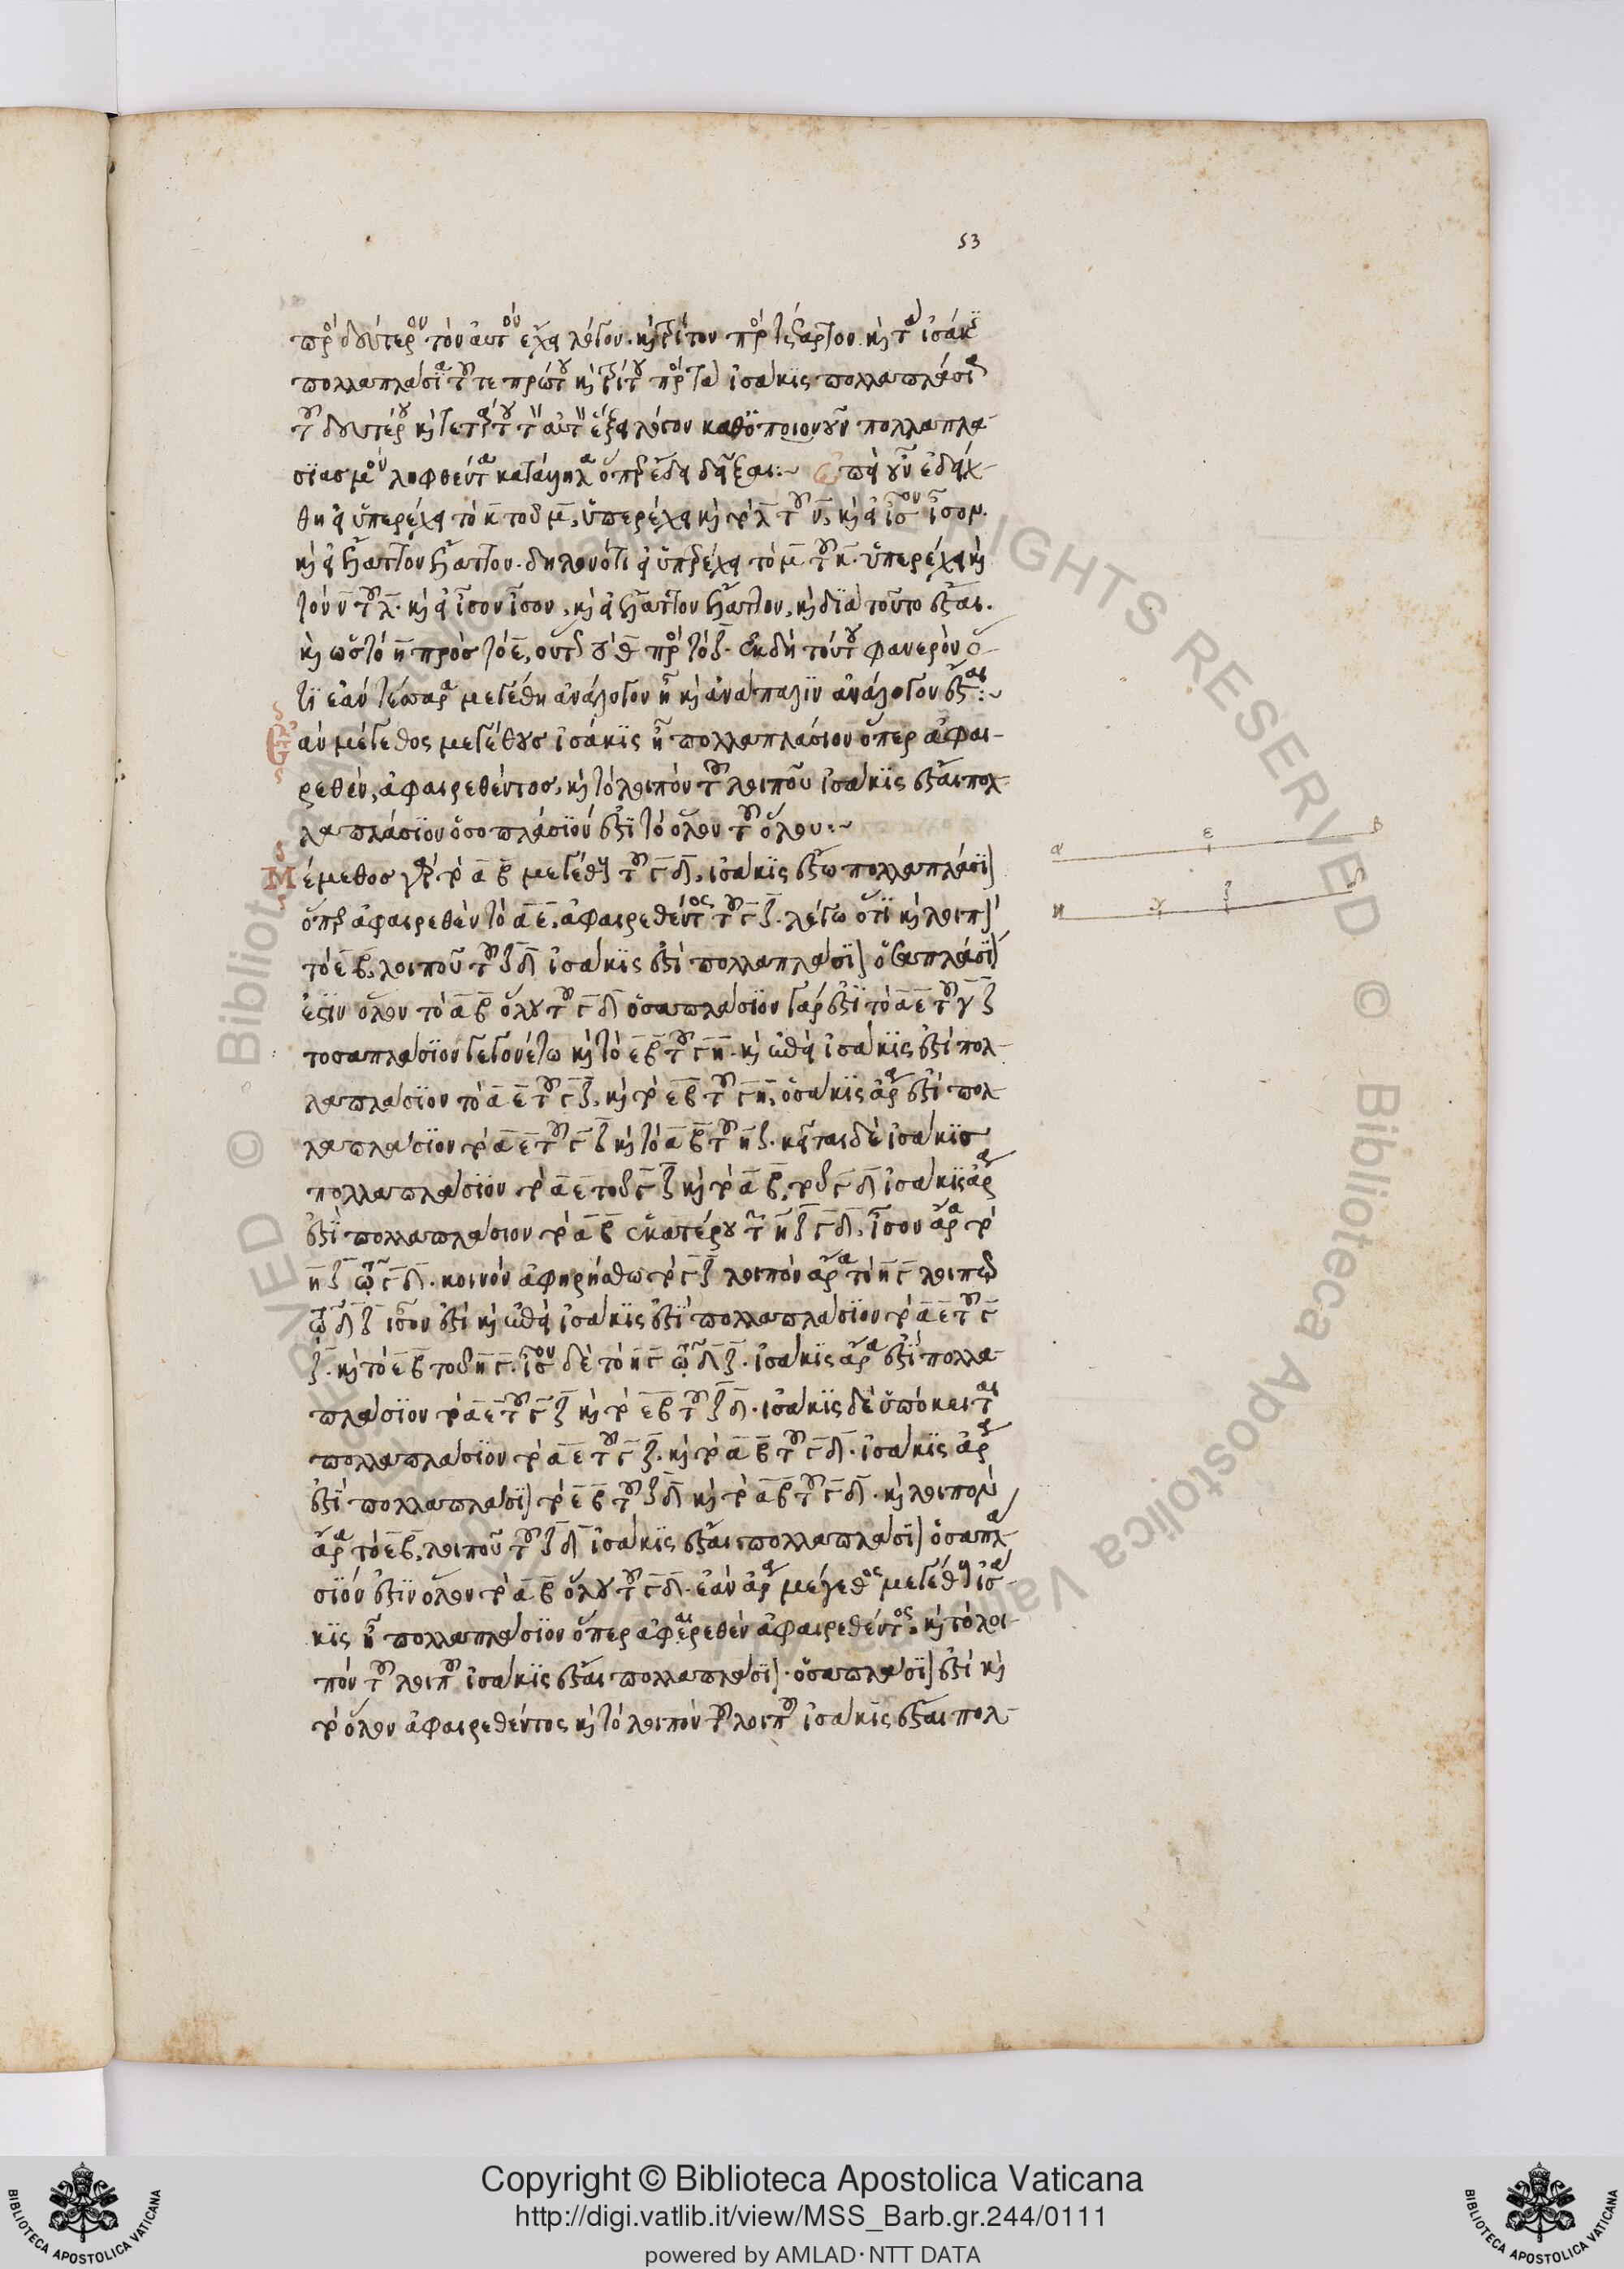 53
πρὸς δεύτερον τὸν αὐτὸν ἔχει λόγον. καὶ τρίτον πρὸς τέταρτον. καὶ τὰ ἰσάκις
πολλαπλάσια τοῦ τε πρώτου καὶ τρίτου πρὸς τὰ ἰσάκις πολλαπλάσια
τοῦ δευτέρου καὶ τετάρτου τὸν αὐτὸν ἕξει λόγον καθ' ὁποιονοῦν πολλαπλα-
σιασμὸν ληφθέντα κατάλληλα ὅπερ ἔδει δεῖξαι:~ Ἐπεὶ οὖν ἐδείχ-
θη εἰ ὑπερέχει τὸ κ τοῦ μ, ὑπερέχει καὶ τὸ λ τοῦ ν, καὶ εἰ ἴσον ἴσον.
καὶ εἰ ἔλαττον ἔλαττον. δηλονότι εἰ ὑπερέχει τὸ μ τοῦ κ. ὑπερέχει καὶ
τὸ ν τοῦ λ. καὶ εἰ ἴσον ἴσον, καὶ εἰ ἔλαττον ἔλαττον, καὶ διὰ τοῦτο ἔσται.
καὶ ὡς τὸ η πρὸς τὸ ε, οὕτως τὸ θ πρὸς τὸ ζ. ἐκ δὴ τούτου φανερὸν ὅ-
τι ἐὰν τέσσαρα μεγέθη ἀνάλογον ᾖ καὶ ἀνάπαλιν ἀνάλογον ἔσται:~
Ἐὰν μέγεθος μεγέθους ἰσάκις ᾖ πολλαπλάσιον ὅπερ ἀφαι-
ρεθὲν, ἀφαιρεθέντος, καὶ τὸ λοιπὸν τοῦ λοιποῦ ἰσάκις ἔσται πολ-
λαπλάσιον ὁσοπλάσιόν ἐστι τὸ ὅλον τοῦ ὅλου:~
Μέμεθος γὰρ τὸ α β μεγέθους τοῦ γ δ, ἰσάκις ἔστω πολλαπλάσιον
ὅπερ ἀφαιρεθὲν τὸ α ε, ἀφαιρεθέντος τοῦ γ ζ. λέγω ὅτι καὶ λοιπὸν
τὸ ε β, λοιποῦ τοῦ ζ δ ἰσάκις ἐστὶ πολλαπλάσιον ὁσαπλάσιον
ἐστιν ὅλον τὸ α β ὅλου τοῦ γ δ ὁσαπλάσιον γάρ ἐστι τὸ α ε τοῦ γ ζ
τοσαπλάσιον γεγονέτω καὶ τὸ ε β τοῦ γ η. καὶ ἐπεὶ ἰσάκις ἐστὶ πολ-
λαπλάσιον τὸ α ε τοῦ γ ζ, καὶ τὸ ε β τοῦ γ η, ὁσάκις ἄρα ἐστὶ πολ-
λαπλάσιον τὸ α ε τοῦ γ ζ καὶ τὸ α β τοῦ η ζ. κεῖται δὲ ἰσάκις
πολλαπλάσιον τὸ α ε τοῦ γ ζ καὶ τὸ α β, τοῦ γ δ ἰσάκις ἄρα
ἐστὶ πολλαπλάσιον τὸ α β ἑκατέρου τῶν η ζ γ δ, ἴσον ἄρα τὸ
η ζ τῷ γ δ. κοινὸν ἀφῃρήσθω τὸ γ ζ λοιπὸν ἄρα τὸ η γ λοιπῷ
τῷ δ ζ ἴσον ἐστὶ καὶ ἐπεὶ ἰσάκις ἐστὶ πολλαπλάσιον τὸ α ε τοῦ γ
ζ. καὶ τὸ ε β τοῦ η γ. ἴσον δὲ τὸ η γ τῷ δ ζ. ἰσάκις ἄρα ἐστὶ πολλα-
πλάσιον τὸ α ε τοῦ γ ζ καὶ τὸ ε β τοῦ ζ δ. ἰσάκις δὲ ὑπόκειται
πολλαπλάσιον τὸ α ε τοῦ γ ζ. καὶ τὸ α β τοῦ γ δ. ἰσάκις ἄρα
ἐστὶ πολλαπλάσιον τὸ ε β τοῦ ζ δ καὶ τὸ α β τοῦ γ δ. καὶ λοιπὸν
ἄρα τὸ ε β, λοιποῦ τοῦ ζ δ ἰσάκις ἔσται πολλαπλάσιον ὁσαπλά
σιόν ἐστιν ὅλον τὸ α β ὅλου τοῦ γ δ. ἐὰν ἄρα μέγεθος μεγέθους ἰσά-
κις ᾖ πολλαπλάσιον ὅπερ ἀφαιρεθὲν ἀφαιρεθέντος, καὶ τὸ λοι-
πὸν τοῦ λοιποῦ ἰσάκις ἔσται πολλαπλάσιον. ὁσαπλάσιον ἐστὶ καὶ
τὸ ὅλον ἀφαιρεθέντος καὶ τὸ λοιπὸν τοῦ λοιποῦ ἰσάκις ἔσται πολ-
α ε β
η γ ζ δ
Copyright © Biblioteca Apostolica Vaticana
http://digi.vatlib.it/view/MSS_Barb.gr.244/0111
powered by AMLAD·NTT DATA
BIBLIOTECA APOSTOLICA VATICANA
BIBLIOTECA APOSTOLICA VATICANA